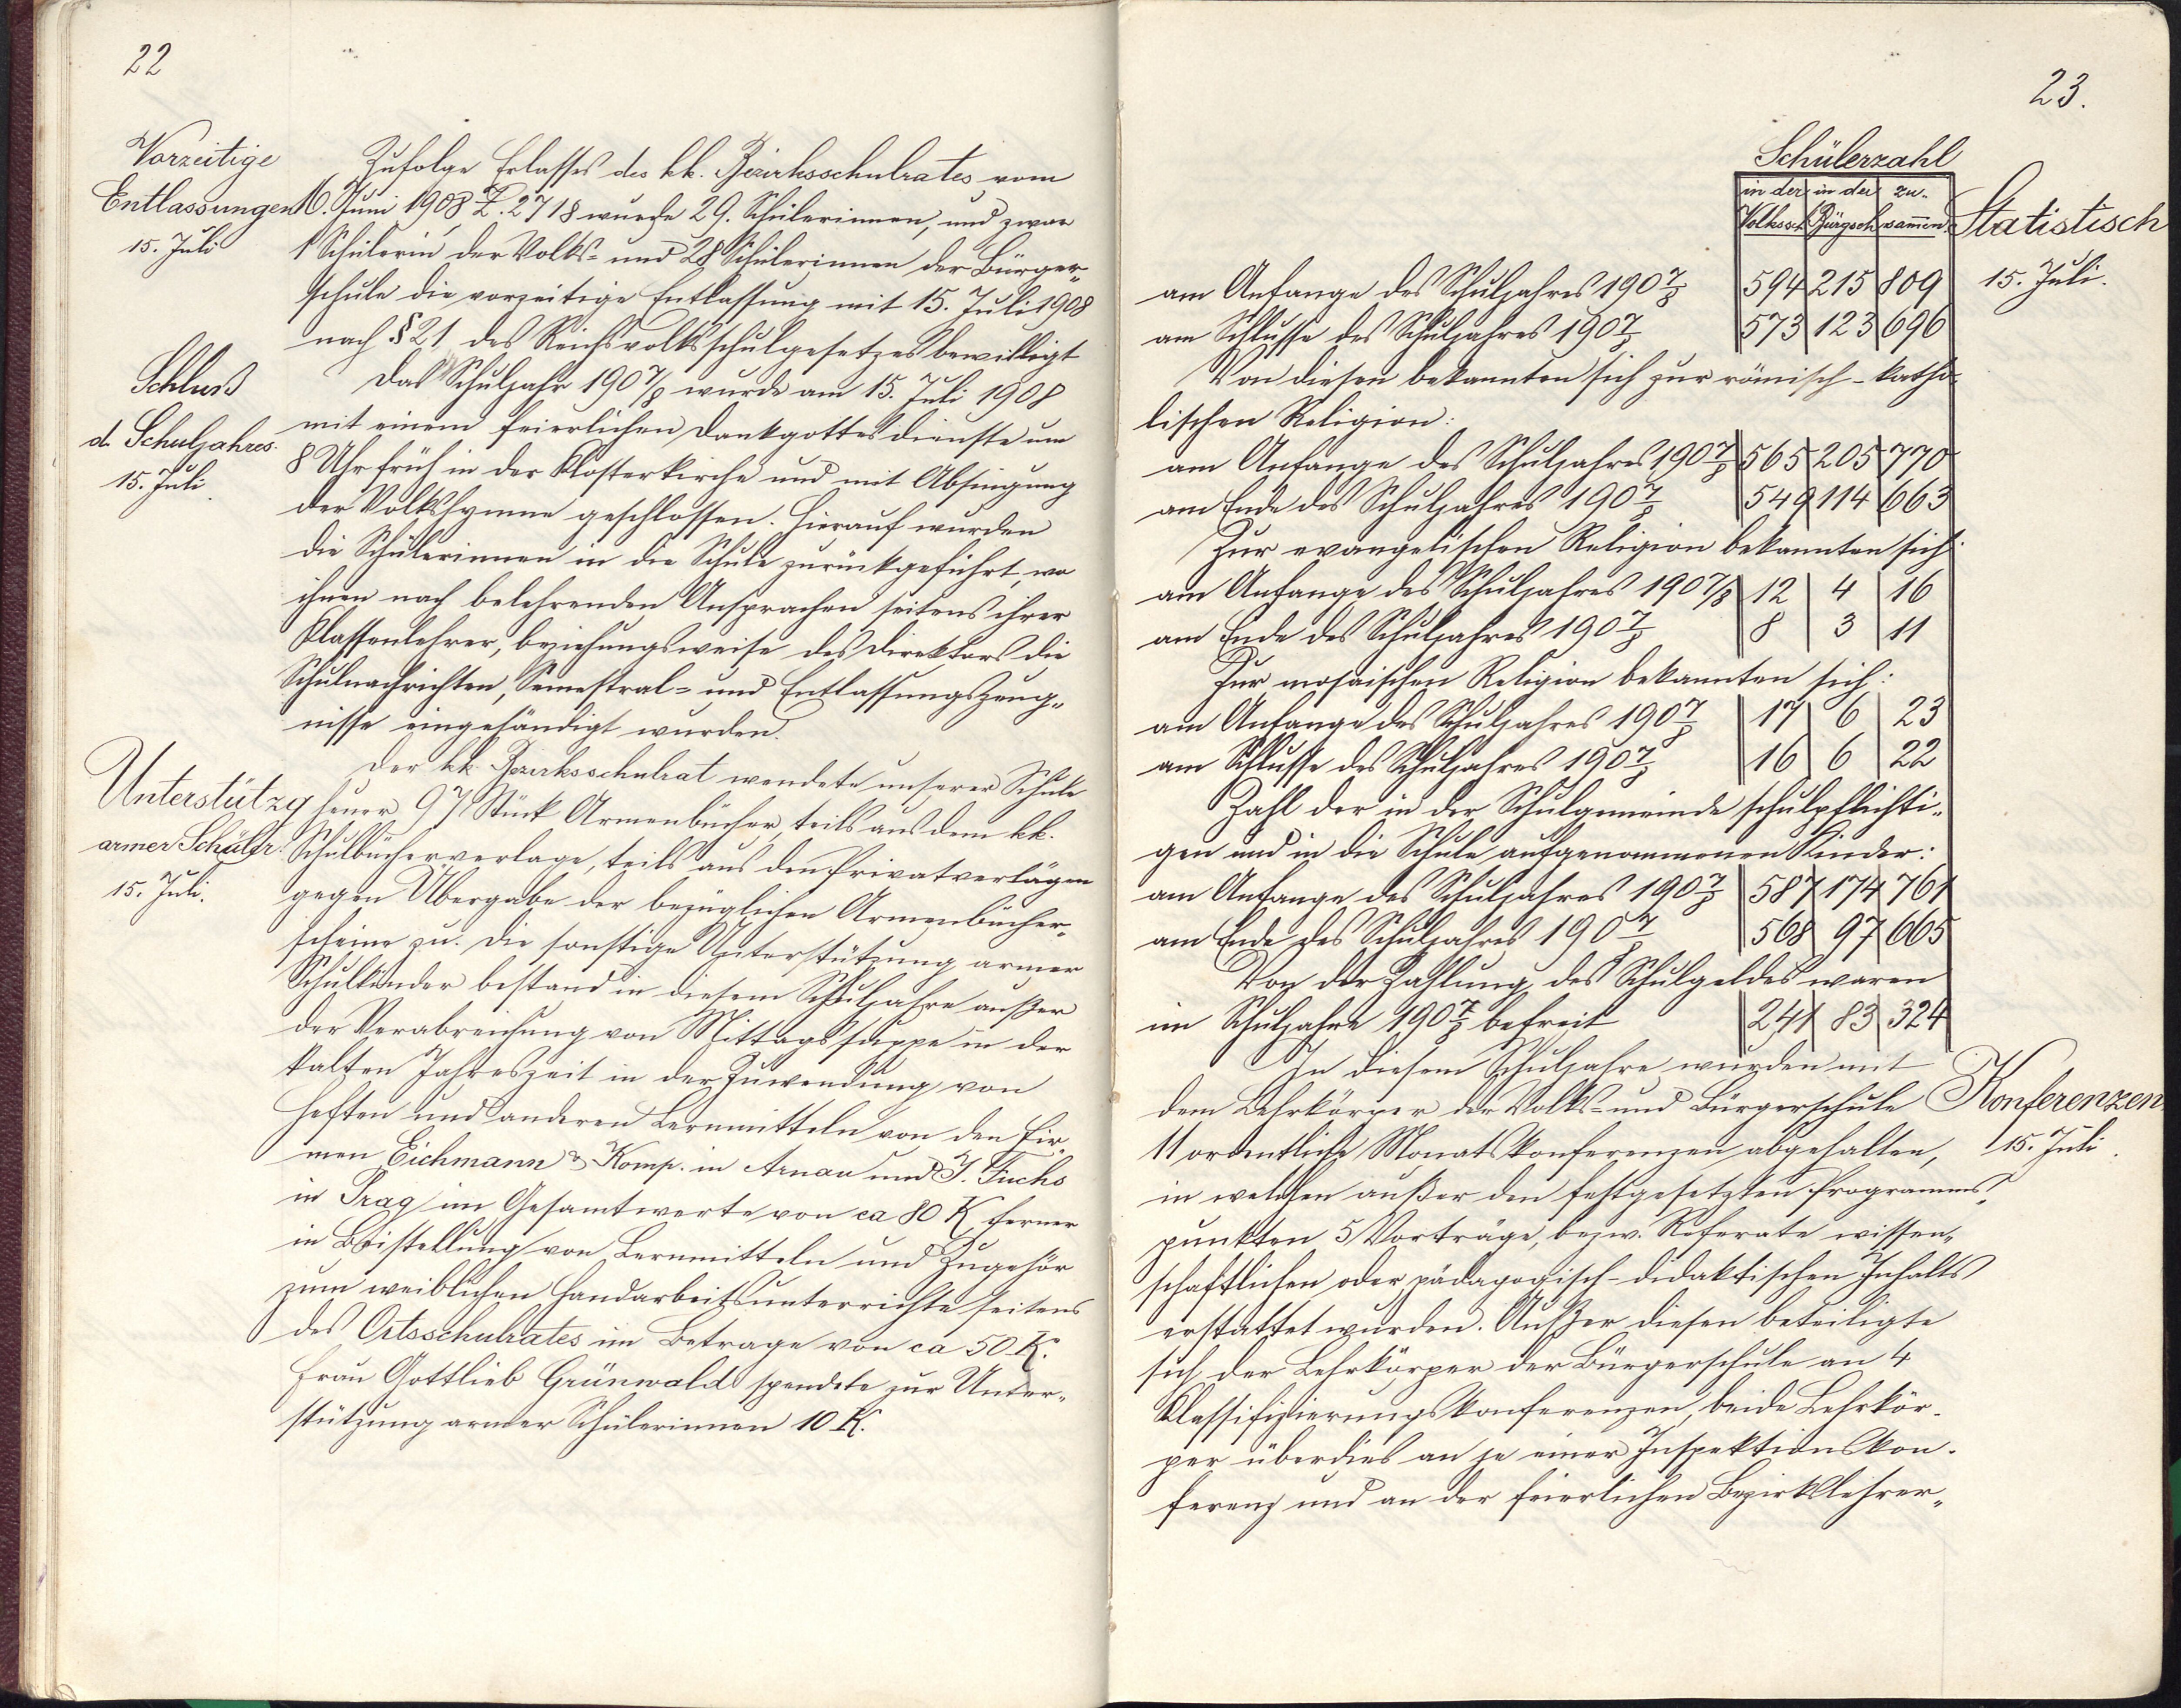 22
Vorzeitige
Entlassungen
15. Juli
Zufolge Erlasses des kk. Bezirksschulrates vom
16. Juni 1908 Z. 2718 wurde 29. Schülerinnen, und zwar
1 Schülerin der Volks- und 28 Schülerinnen der Bürger-
schule die vorzeitige Entlassung mit 15. Juli 1908
nach § 21 des Reichsvolksschulgesetzes bewilligt
Schluß
d. Schuljahres.
15. Juli
Das Schuljahr 1907/8 wurde am 15. Juli 1908
mit einem feierlichen Dankgottesdienste um
8 Uhr früh in der Klosterkirche und mit Absingung
der Volkshymne geschlossen. Hierauf wurden
die Schülerinnen in die Schule zurückgeführt, wo
ihnen nach belehrenden Ansprachen seitens ihrer
Klassenlehrer, beziehungsweise des Direktors die
Schulnachrichten, Semestral- und Entlassungszeug-
nisse eingehändigt wurden.
Unterstützg
armer Schülr.
15. Juli.
Der kk. Bezirksschulrat wendete unserer Schule
heuer 97 Stück Armenbücher, teils aus dem kk.
Schulbücherverlage, teils aus den Privatverlägen
gegen Übergabe der bezüglichen Armenbücher-
scheine zu. Die sonstige Unterstützung armer
Schulkinder bestand in diesem Schuljahre außer
der Verabreichung von Mittagssuppe in der
kalten Jahreszeit in der Zuwendung von
Heften und anderen Lernmitteln von den Fir-
men Eichmann & Komp. in Arnau und J. Fuchs
in Prag im Gesamtwerte von ca 80 K, ferner
in Beistellung von Lernmitteln und Zugehör
zum weiblichen Handarbeitsunterrichte seitens
des Ortsschulrates im Betrage von ca 50 K.
Frau Gottlieb Grünwald spendete zur Unter-
stützung armer Schülerinnen 10 K.
23.
Schülerzahl
in der in der zu-
Volkssch. Bürgsch. sam̅en.
Statistisch
15. Juli.
am Anfange des Schuljahres 1907/8 594 215 809
am Schlusse des Schuljahres 1907/8 573 123 696
Von diesen bekannten sich zur römisch-katho-
lischen Religion:
am Anfange des Schuljahres 1907/8 565 205 770
am Ende des Schuljahres 1907/8 549 114 663
Zur evangelischen Religion bekannten sich:
am Anfange des Schuljahres 1907/8 12 4 16
am Ende des Schuljahres 1907/8 8 3 11
Zur mosaischen Religion bekannten sich:
am Anfange des Schuljahres 1907/8 17 6 23
am Schlusse des Schuljahres 1907/8 16 6 22
Zahl der in der Schulgemeinde schulpflichti-
gen und in die Schule aufgenommenen Kinder:
am Anfange des Schuljahres 1907/8 587 174 761
am Ende des Schuljahres 1907/8 568 97 665
Von der Zahlung des Schulgeldes waren
im Schuljahre 1907/8 befreit 241 83 324
Konferenzen.
15. Juli.
In diesem Schuljahre wurden mit
dem Lehrkörper der Volks- und Bürgerschule
11 ordentliche Monatskonferenzen abgehalten,
in welchen außer den festgesetzten Programms-
punkten 5 Vorträge, bezw. Referate wissen-
schaftlichen oder pädagogisch-didaktischen Inhalts
erstattet wurden. Außer diesen beteiligte
sich der Lehrkörper der Bürgerschule an 4
Klassifizierungskonferenzen, beide Lehrkör-
per überdies an je einer Inspektionskon-
ferenz und an der feierlichen Bezirkslehrer-